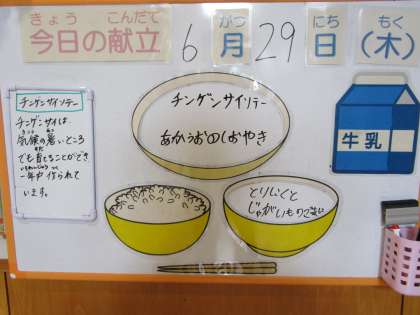 きょう こんだて がつ にち もく
今日の献立 6月29日(木)
チンゲンサイソテー
チンゲンサイは、
きこう あつ
気候の暑いところ
そだ
でも育てることができ
いちねんじゅう つく
一年中作られて
います。
チンゲンサイソテー
あかうおのしおやき
牛乳
とりにくと
じゃがいもの